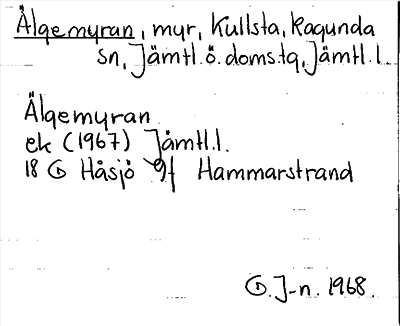 Älgemyran, myr, Kullsta, Ragunda
sn, Jämtl.ö.doms.tg, Jämtl.l.
Älgemyran
ek (1967) Jämtl.l.
18 G Håsjö 9f Hammarstrand
G. J-n. 1968.